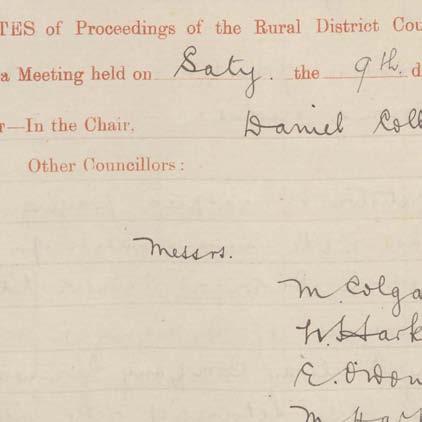 TES of Proceedings of the Rural District Cou
a Meeting held on Saty. the 9th. d
r—In the Chair, Daniel Coll
Other Councillors:
Messrs.
M. Colga
W. Hark
E. O'Don
M. Har